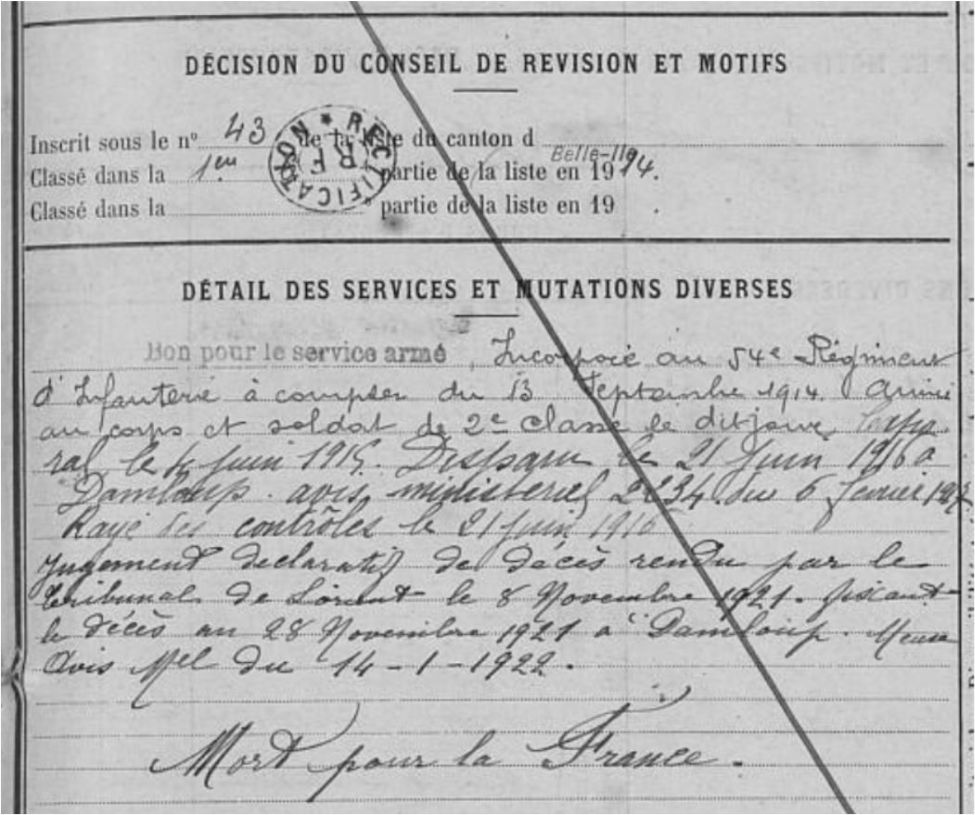 DÉCISION DU CONSEIL DE REVISION ET MOTIFS
Inscrit sous le nº 43 de la liste du canton d Belle-Ile
Classé dans la 1ere partie de la liste en 1914.
Classé dans la partie de la liste en 19 .
RECTIFICATION
RF
DÉTAIL DES SERVICES ET MUTATIONS DIVERSES
Bon pour le service armé, Incorporé au 54e Régiment
d'Infanterie à compter du 13 Septembre 1914. Arrivé
au corps et soldat de 2e classe le dit jour. Capo
ral le 4 Juin 1915. Disparu le 21 Juin 1916 à
Damloup. avis ministeriel 2234. du 6 février
Rayé des contrôles le 21 Juin 1916
Jugement declaratif de décès rendu par le
tribunal de Lorient le 8 Novembre 1921. fixant
le décès au 28 Novembre 1921 à Damloup. Meuse
Avis Mel du 14-1-1922.
Mort pour la France.